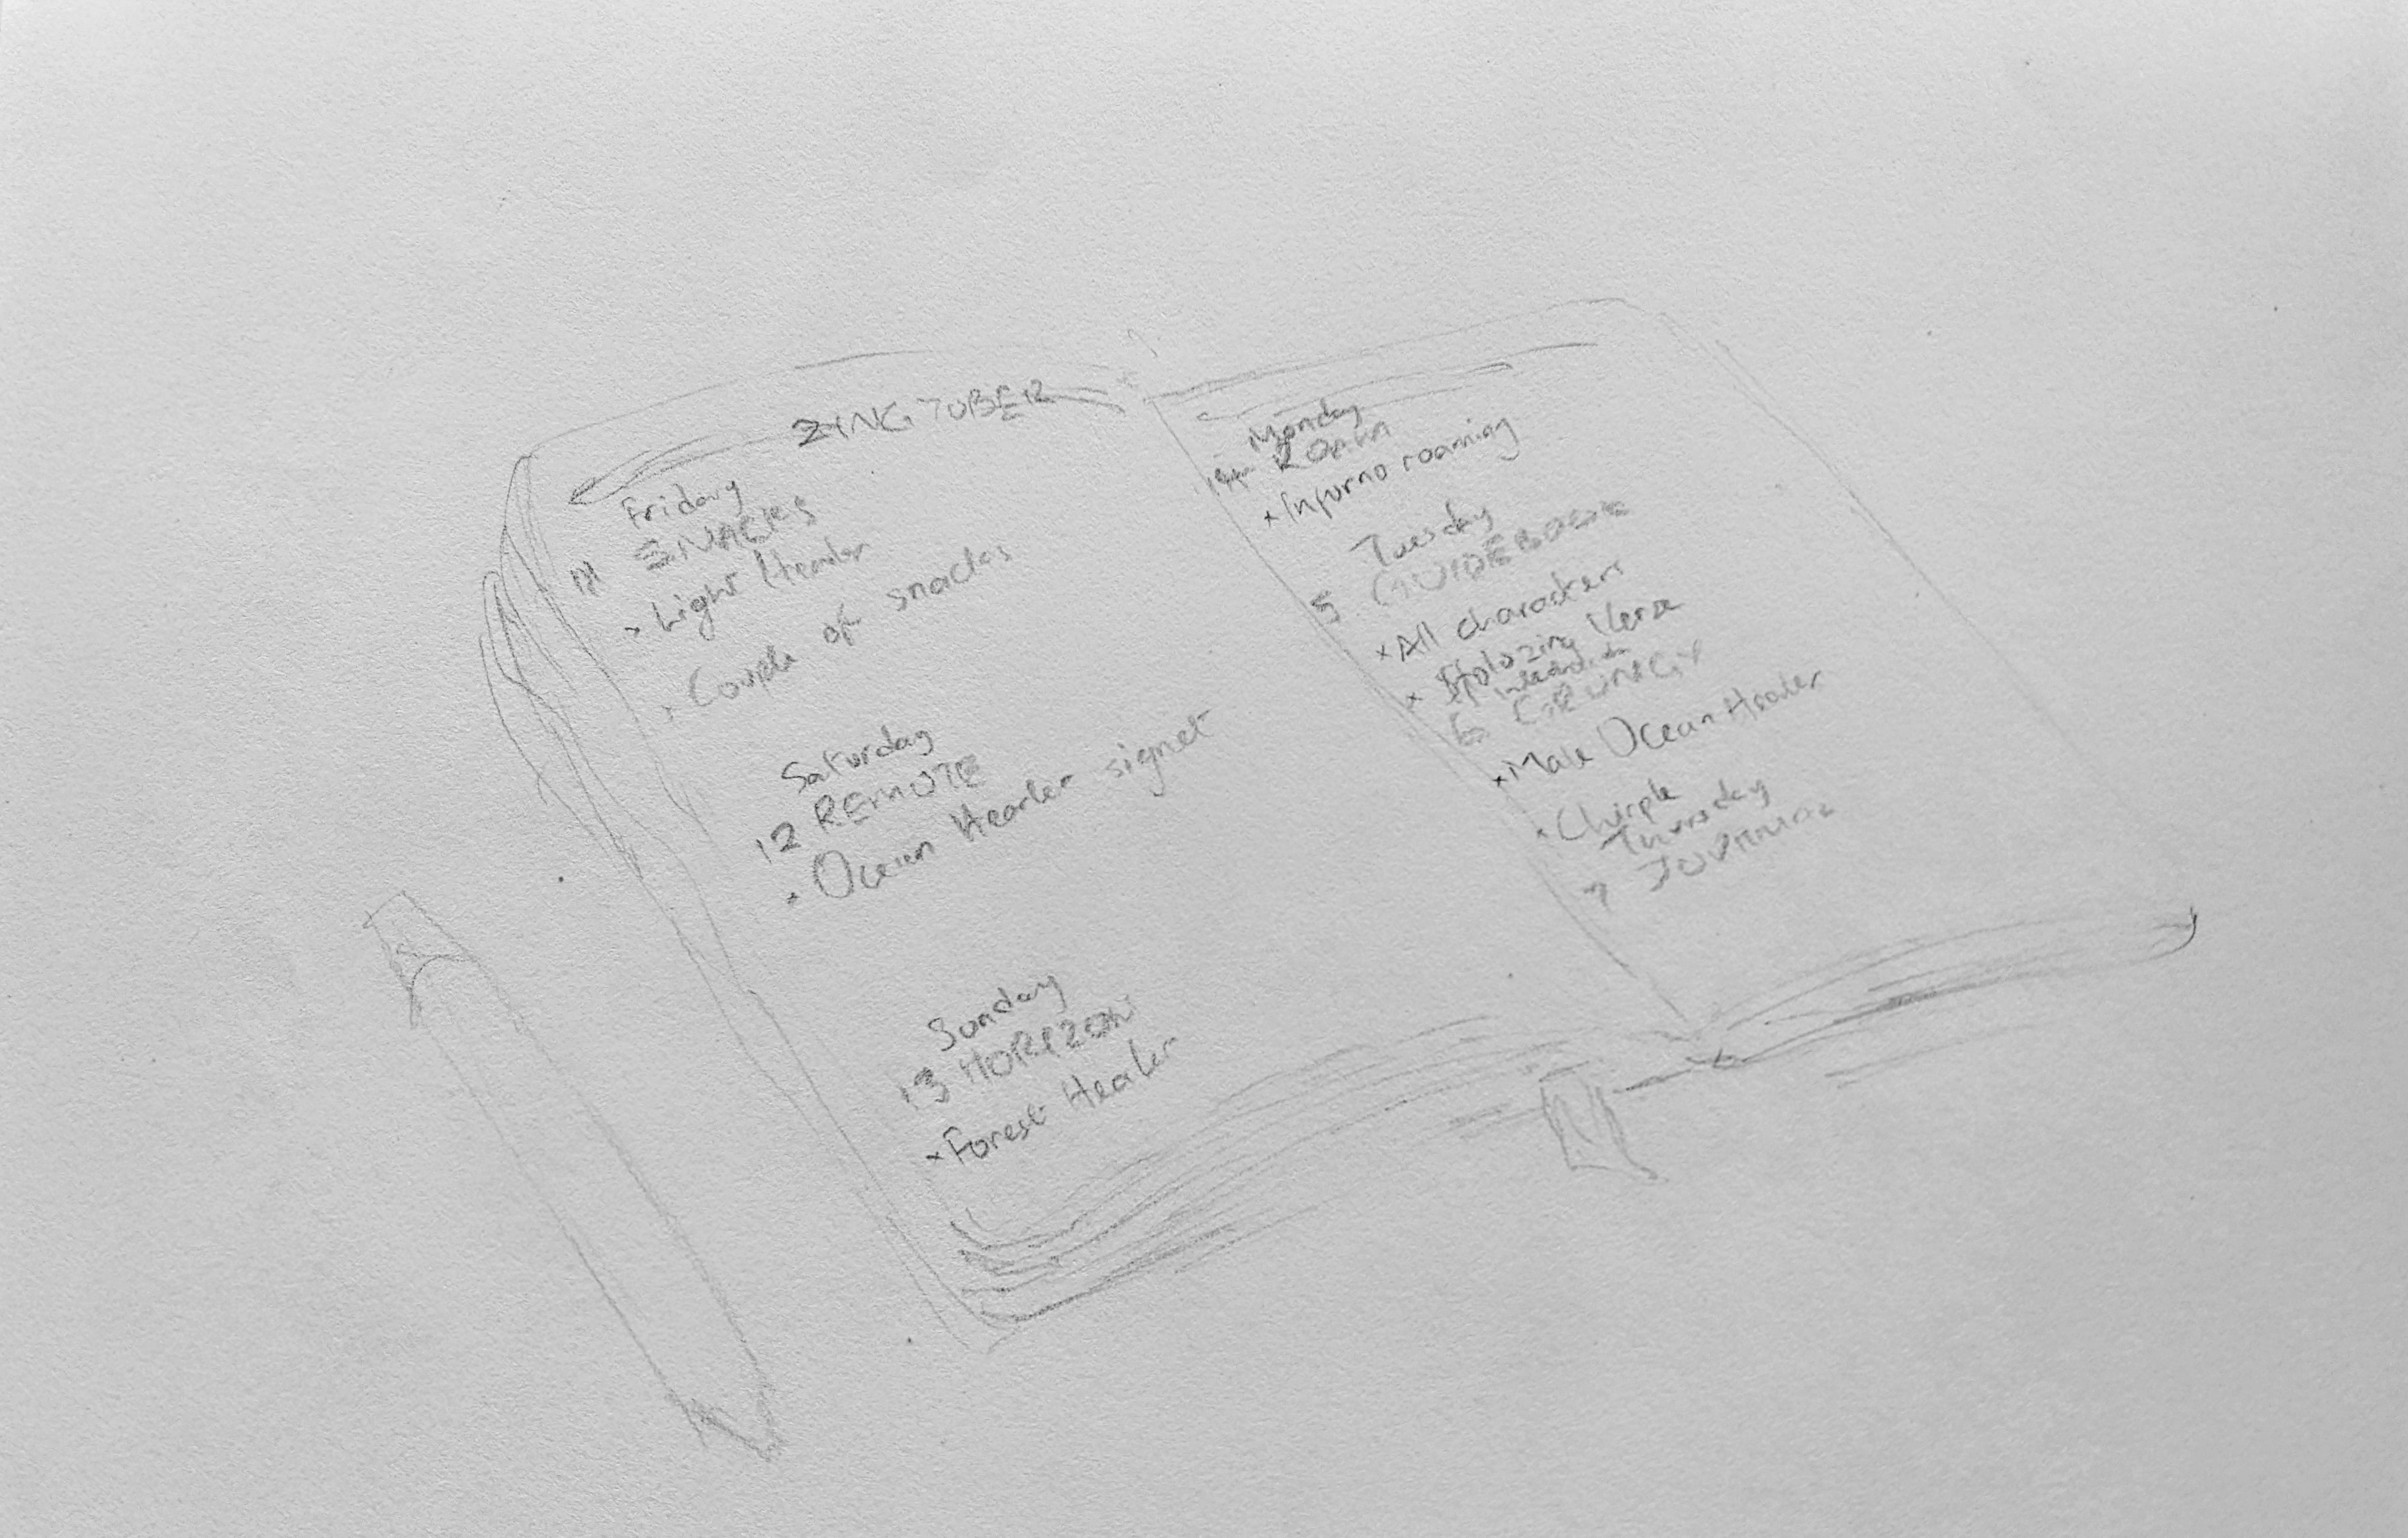 ZINGTOBER
Friday
11 SNACKS
× Light Healer
× Couple of snacks
Saturday
12 REMOTE
× Ocean Healer signet
Sunday
13 HORIZON
× Forest Healer
Monday
ROAM
× Infurno roaming
Tuesday
5 GUIDEBOOK
× All characters
× Verse
6 GRUNGY
× Male Ocean Healer
× Chirple
Thursday
7 JOURNAL